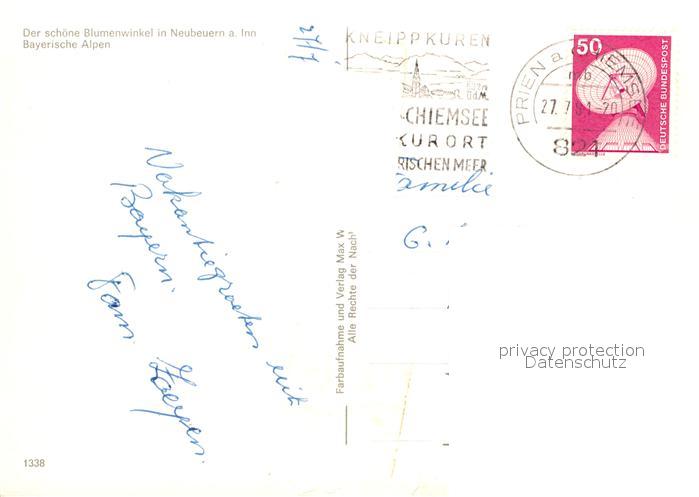 Der schöne Blumenwinkel in Neubeuern a. Inn
Bayerische Alpen
27/7
KNEIPPKUREN
CHIEMSEE
KURORT
RISCHEN MEER
PRIEN a. CHIEMS
27. 7. 81 - 20
mb
821
50
DEUTSCHE BUNDESPOST
Familie
G
Vakantiegroeten uit
Bayern.
Fam.
Farbaufnahme und Verlag Max W
Alle Rechte der Nach
privacy protection
Datenschutz
1338